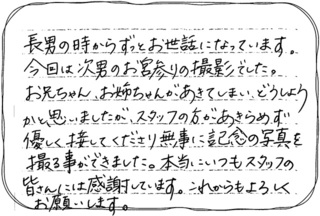 長男の時からずっとお世話になっています。
今回は次男のお宮参りの撮影でした。
お兄ちゃん、お姉ちゃんがあきてしまい、どうしよう
かと思いましたが、スタッフの方があきらめず
優しく接してくださり無事に記念の写真を
撮る事ができました。本当にいつもスタッフの
皆さんには感謝しています。これからもよろしく
お願いします。